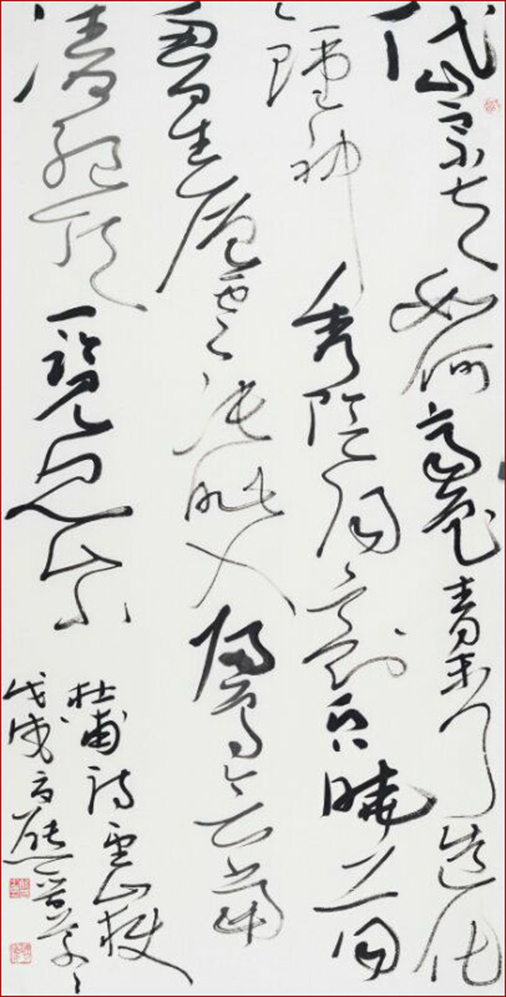 岱宗夫如何齊魯青未了造化
鍾神秀陰陽割昏曉蕩
胸生層雲決眥入歸鳥會當
凌絕頂一覽眾山小
杜甫詩望嶽
戊戌